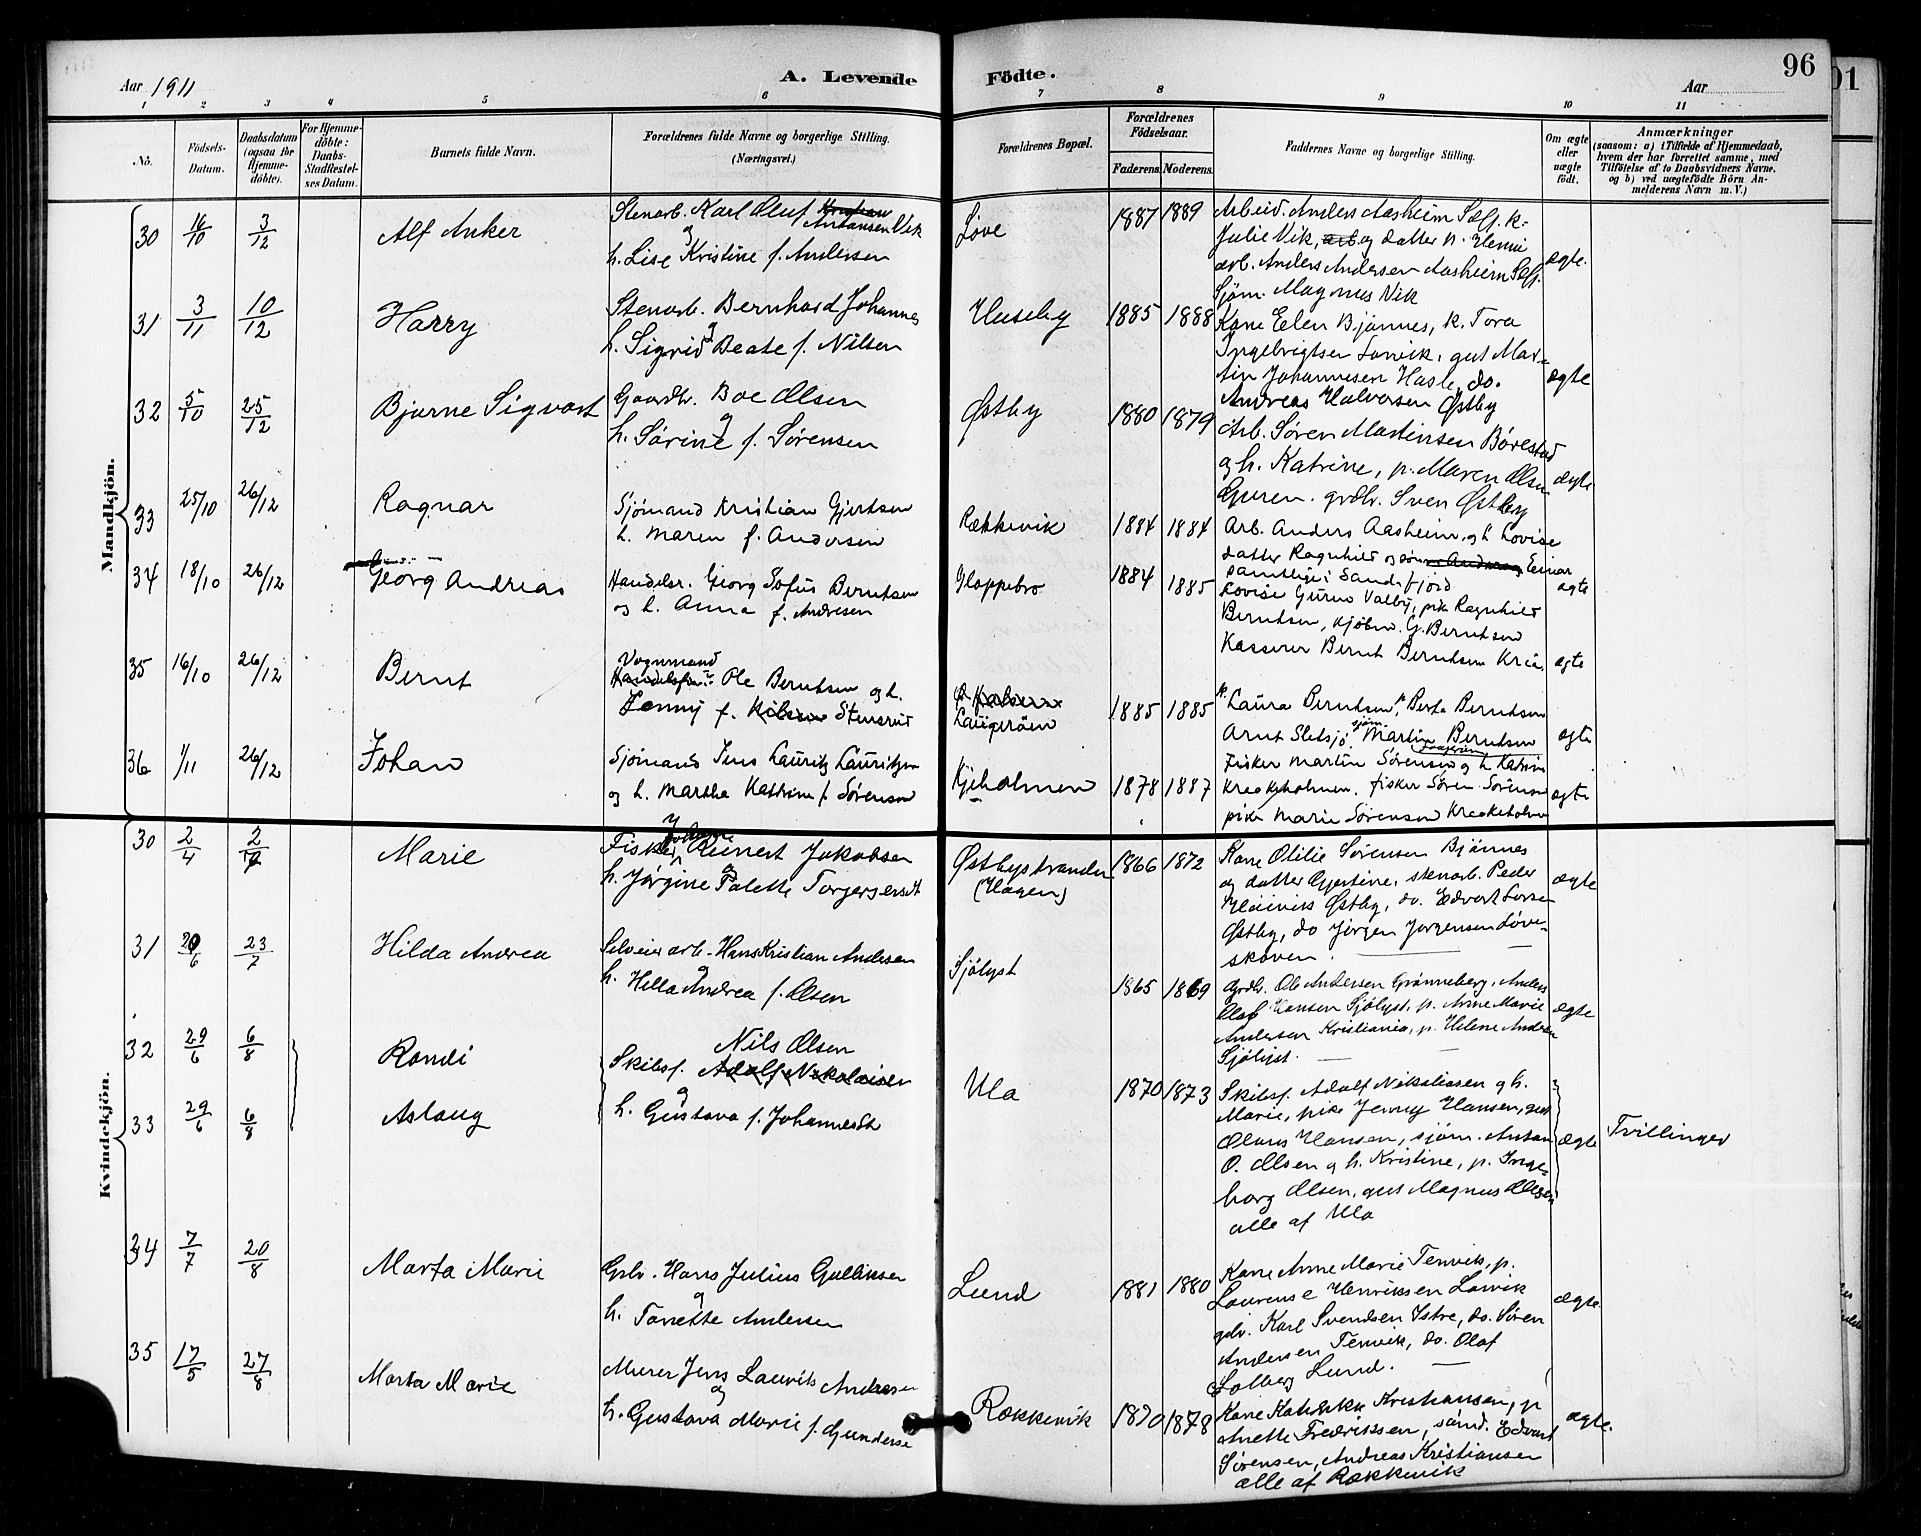 Aar 1911
A. Levende Födte.
Aar
96
01
1 2 3 4 5 6 7 8 9 10 11
No.
Födsels-Datum.
Daabsdatum (ogsaa för Hjemme-döbte).
For Hjemme-döbte: Daabs-Stadfestel-ses Datum.
Barnets fulde Navn.
Forældrenes fulde Navne og borgerlige Stilling. (Næringsvei.)
Forældrenes Bopæl.
Forældrenes Födselsaar.
Faderens. Moderens.
Faddernes Navne og borgerlige Stilling.
Om ægte eller uægte födt.
Anmærkninger
(saasom: a) i Tilfælde af Hjemmedaab, hvem der har forrettet samme, med Tilföielse af to Daabsvidners Navne, og b) ved uægtefödte Börn An-melderens Navn m. V.)
Mandkjön.
30 16/10 3/12 Alf Anker
Stenarb. Karl Oluf Antonsen Vik
og
h. Lise Kristine f. Andersen
Løve 1887 1889
Arbeid. Anders Aasheim Sæff. k.
Julie Vik, og datter p. Hennie
arb. Anders Andersen Aasheim Sæff.
Sjøm. Magnus Vik
ægte.
31 3/11 10/12 Harry
Stenarb. Bernhard Johannes
og
h. Sigrid Beate f. Nilsen
Huseby 1885 1888
Kone Elen Bjønnes, k. Tora
Ingebrigtsen Lanvik, gut Mar-
tin Johannesen Hasle, do.
Andreas Halvorsen Østby
ægte
32 5/10 25/12 Bjarne Sigvart
Gaardbr. Boe Olsen
og
h. Sørine f. Sørensen
Østby 1880 1879
Arb. Søren Martinsen Børestad
og h. Katrine, p. Maren Olsen
Guren. grdbr. Sven Østby
ægte
33 25/10 26/12 Ragnar
Sjømand Kristian Gjertsen
h. Maren f. Andersen
Rækkevik 1884 1884
Arb. Anders Aasheim og h. Lovise
datter Ragnhild og søn Einar
samtlige i Sandefjord
ægte
34 18/10 26/12 Georg Andreas
Handelsr. Georg Sofus Berntsen
og h. Anna f. Andresen
Gloppebro 1884 1885
Lovise Guren Valby, pike Ragnhild
Berntsen, kjøbm. G. Berntsen
Kasserer Bernt Berntsen Kria.
ægte
35 16/10 26/12 Bernt
Vognmand
Ole Berntsen og h.
Jenny f. Stensrud
Laugeröen 1885 1885
k. Laura Berntsen, p. Berta Berntsen
Arnt Sletsjø, sjøm. Martin Berntsen
ægte
36 1/11 26/12 Johan
Sjømand Jens Lauritz Lauritzen
og h. Martha Kathrine f. Sørensen
Kjeholmen 1878 1887
Fisker Martin Sørensen og h. Katrine
Krækeholmen. fisker Søren Sørensen
pike Marie Sørensen Krækeholmen
ægte
Kvindekjön.
30 2/4 2/7 Marie
Fisker Reinert Jakobsen
og
h. Jørgine Palette Torgersersdt
Østbystranden (Hagen) 1866 1872
Kone Otilie Sørensen Bjønnes
og datter Gjertine, stenarb. Peder
Østby, do. Edvart Larsen
Østby, do Jørgen Jørgensen Løve-
skoven.
ægte
31 20/6 23/7 Hilda Andrea
Selveier arb. Hans Kristian Andersen
og
h. Hella Andrea f. Olsen
Sjölyst 1865 1869
Grdbr. Ole Andersen Grønneberg, Anders
Olaf Hansen Sjölyst, p. Anne Marie
Andersen Kristiania, p. Helene Andersen
Sjölyst.
ægte
32 29/6 6/8 Randi
33 29/6 6/8 Aslaug
Nils Olsen
Skibsf. Adolf Nikolaisen
og
h. Gustava f. Johannesdt
Ula 1870 1873
Skibsf. Adolf Nikolaisen og h.
Marie, pike Jenny Hansen, gut
Olaus Hansen, sjøm. Anton
O. Olsen og h. Kristine, p. Inge-
borg Olsen, gut Magnus Olsen
alle af Ula
ægte
Tvillinger
34 7/7 20/8 Marta Marie
Grbr. Hans Julius Gulliksen
og
h. Tonette Andersen
Lund 1881 1880
Kone Anne Marie Tenvik, p.
Laurense Henriksen Lanvik
gdbr. Karl Svendsen Istre, do. Søren
Andersen Tenvik, do. Olaf
Solberg Lund.
ægte.
35 17/5 27/8 Marta Marie
Murer Jens Lauvits Andresen
og
h. Gustava Marie f. Gundersen
Rækkevik 1870 1878
Kone Kristiansen, p
Anette Fredriksen, Edvart
Sørensen, Andreas Kristiansen
alle af Rækkevik
ægte.